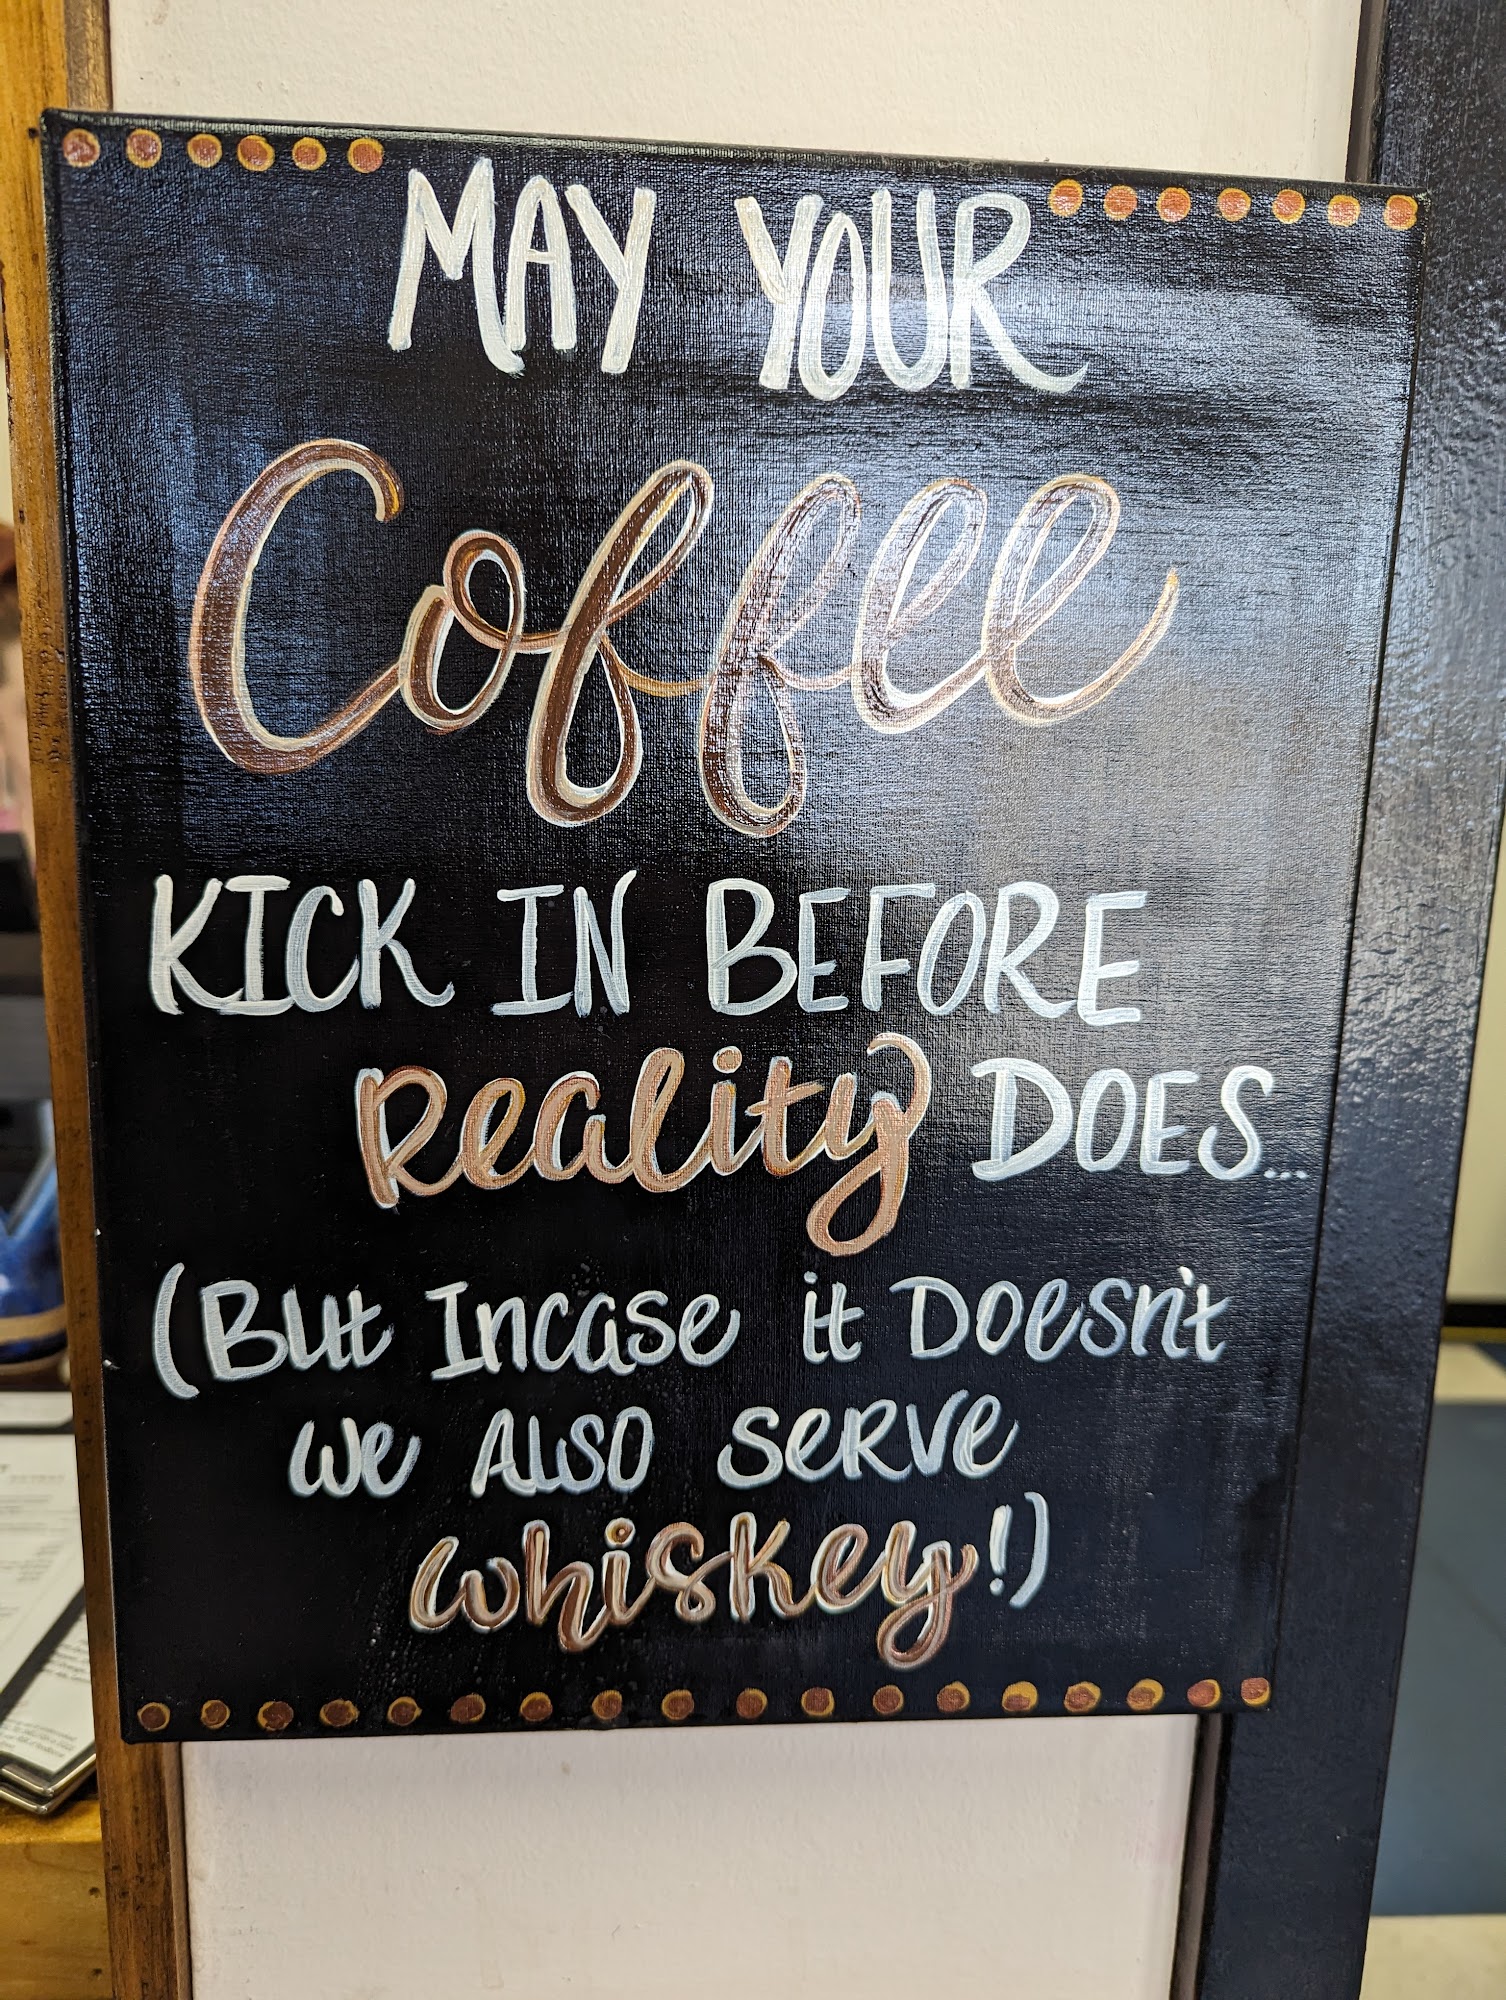 MAY YOUR
Coffee
KICK IN BEFORE
Reality DOES...
(But Incase it Doesn't
we ALSO SeRVe
whiskey!)